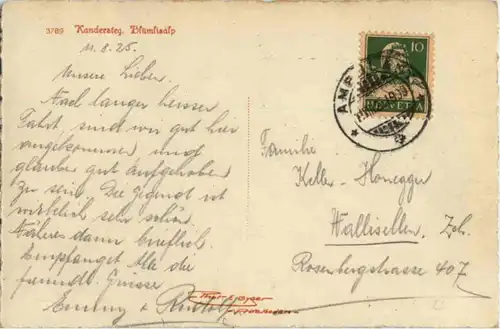 3789 Kandersteg, Blümlisalp
11.8.25.
Unsere Lieben.
Nach langer heisser
Fahrt, sind wir gut hier
angekommen, und
glaube gut aufgehoben
zu sein. Die Gegend ist
wirklich sehr schön.
Näheres dann brieflich.
Empfanget Alle die
freundl. Grüsse
Emmy & Rudolf
10
HELVETIA
Familie
Keller-Honegger
Wallisellen, Zch.
Rosenbergstrasse 407